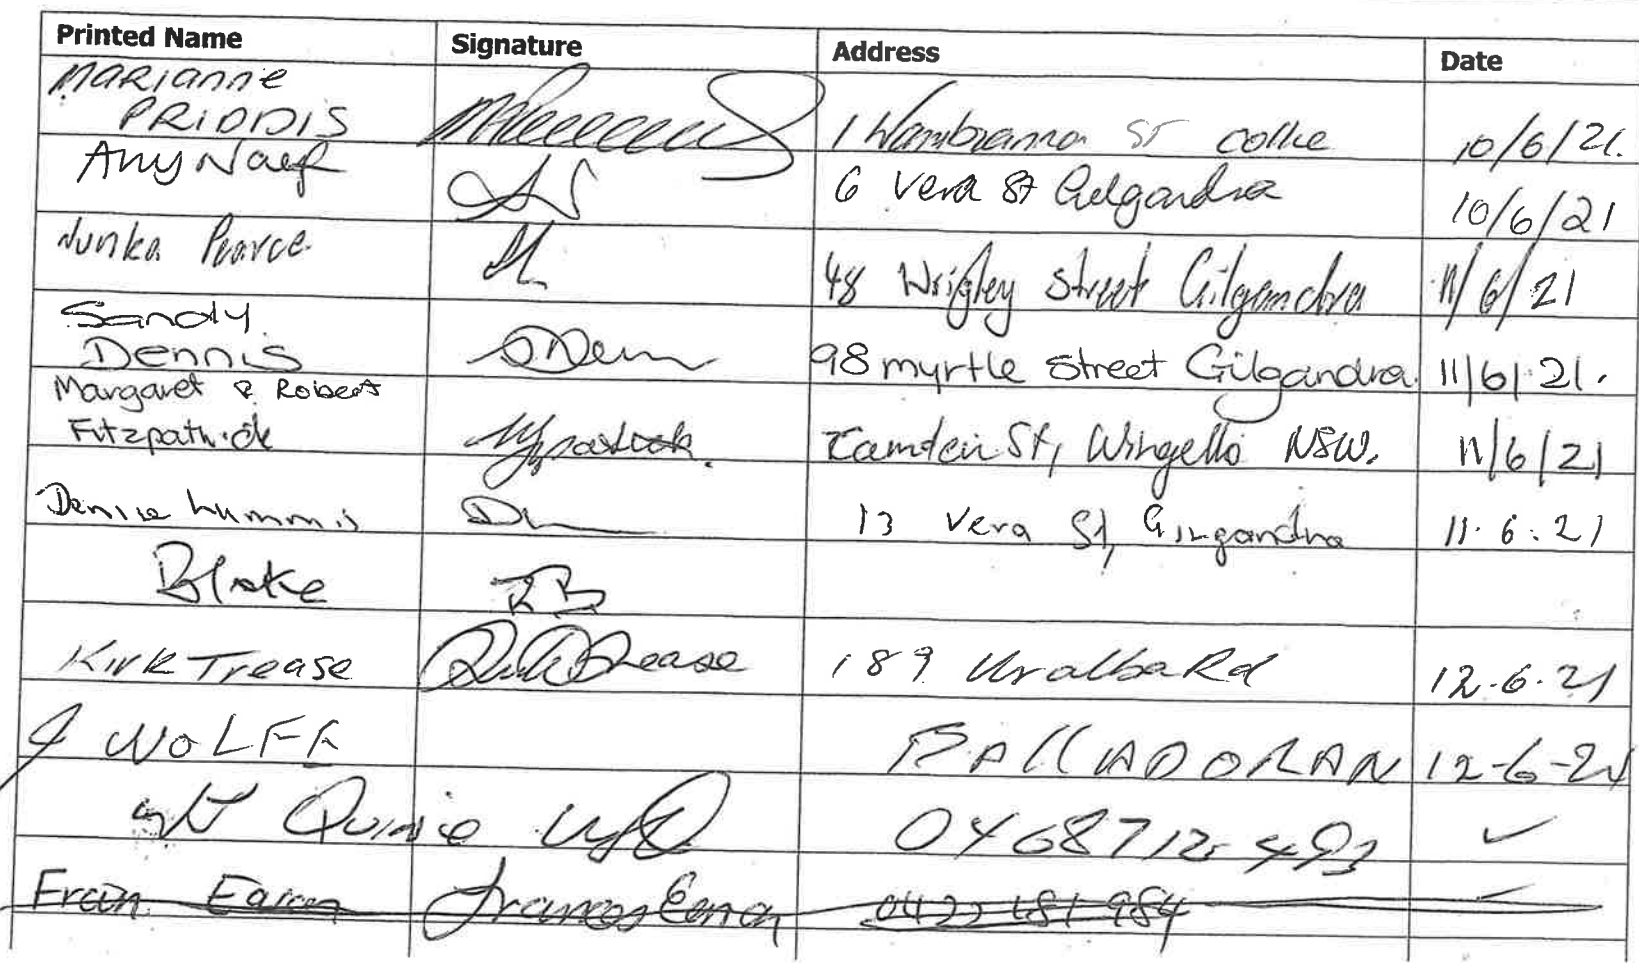 Printed Name Signature Address Date
Marianne
PRIDDIS 1 St Collie 10/6/21.
Amy Naef 6 Vera St Gilgandra 10/6/21
Pearce 48 Wrigley Street Gilgandra 11/6/21
Sandy
Dennis 98 myrtle street Gilgandra 11/6/21.
Margaret & Robert
Fitzpatrick Camden St, Wingello NSW. 11/6/21
Denise Lummis 13 Vera St, Gilgandra 11.6.21
Blake
Kirk Trease 189 Uralba Rd 12.6.21
J WOLFE BALLADORAN 12-6-21
Quinie 0468712493 ✓
0422 181 984